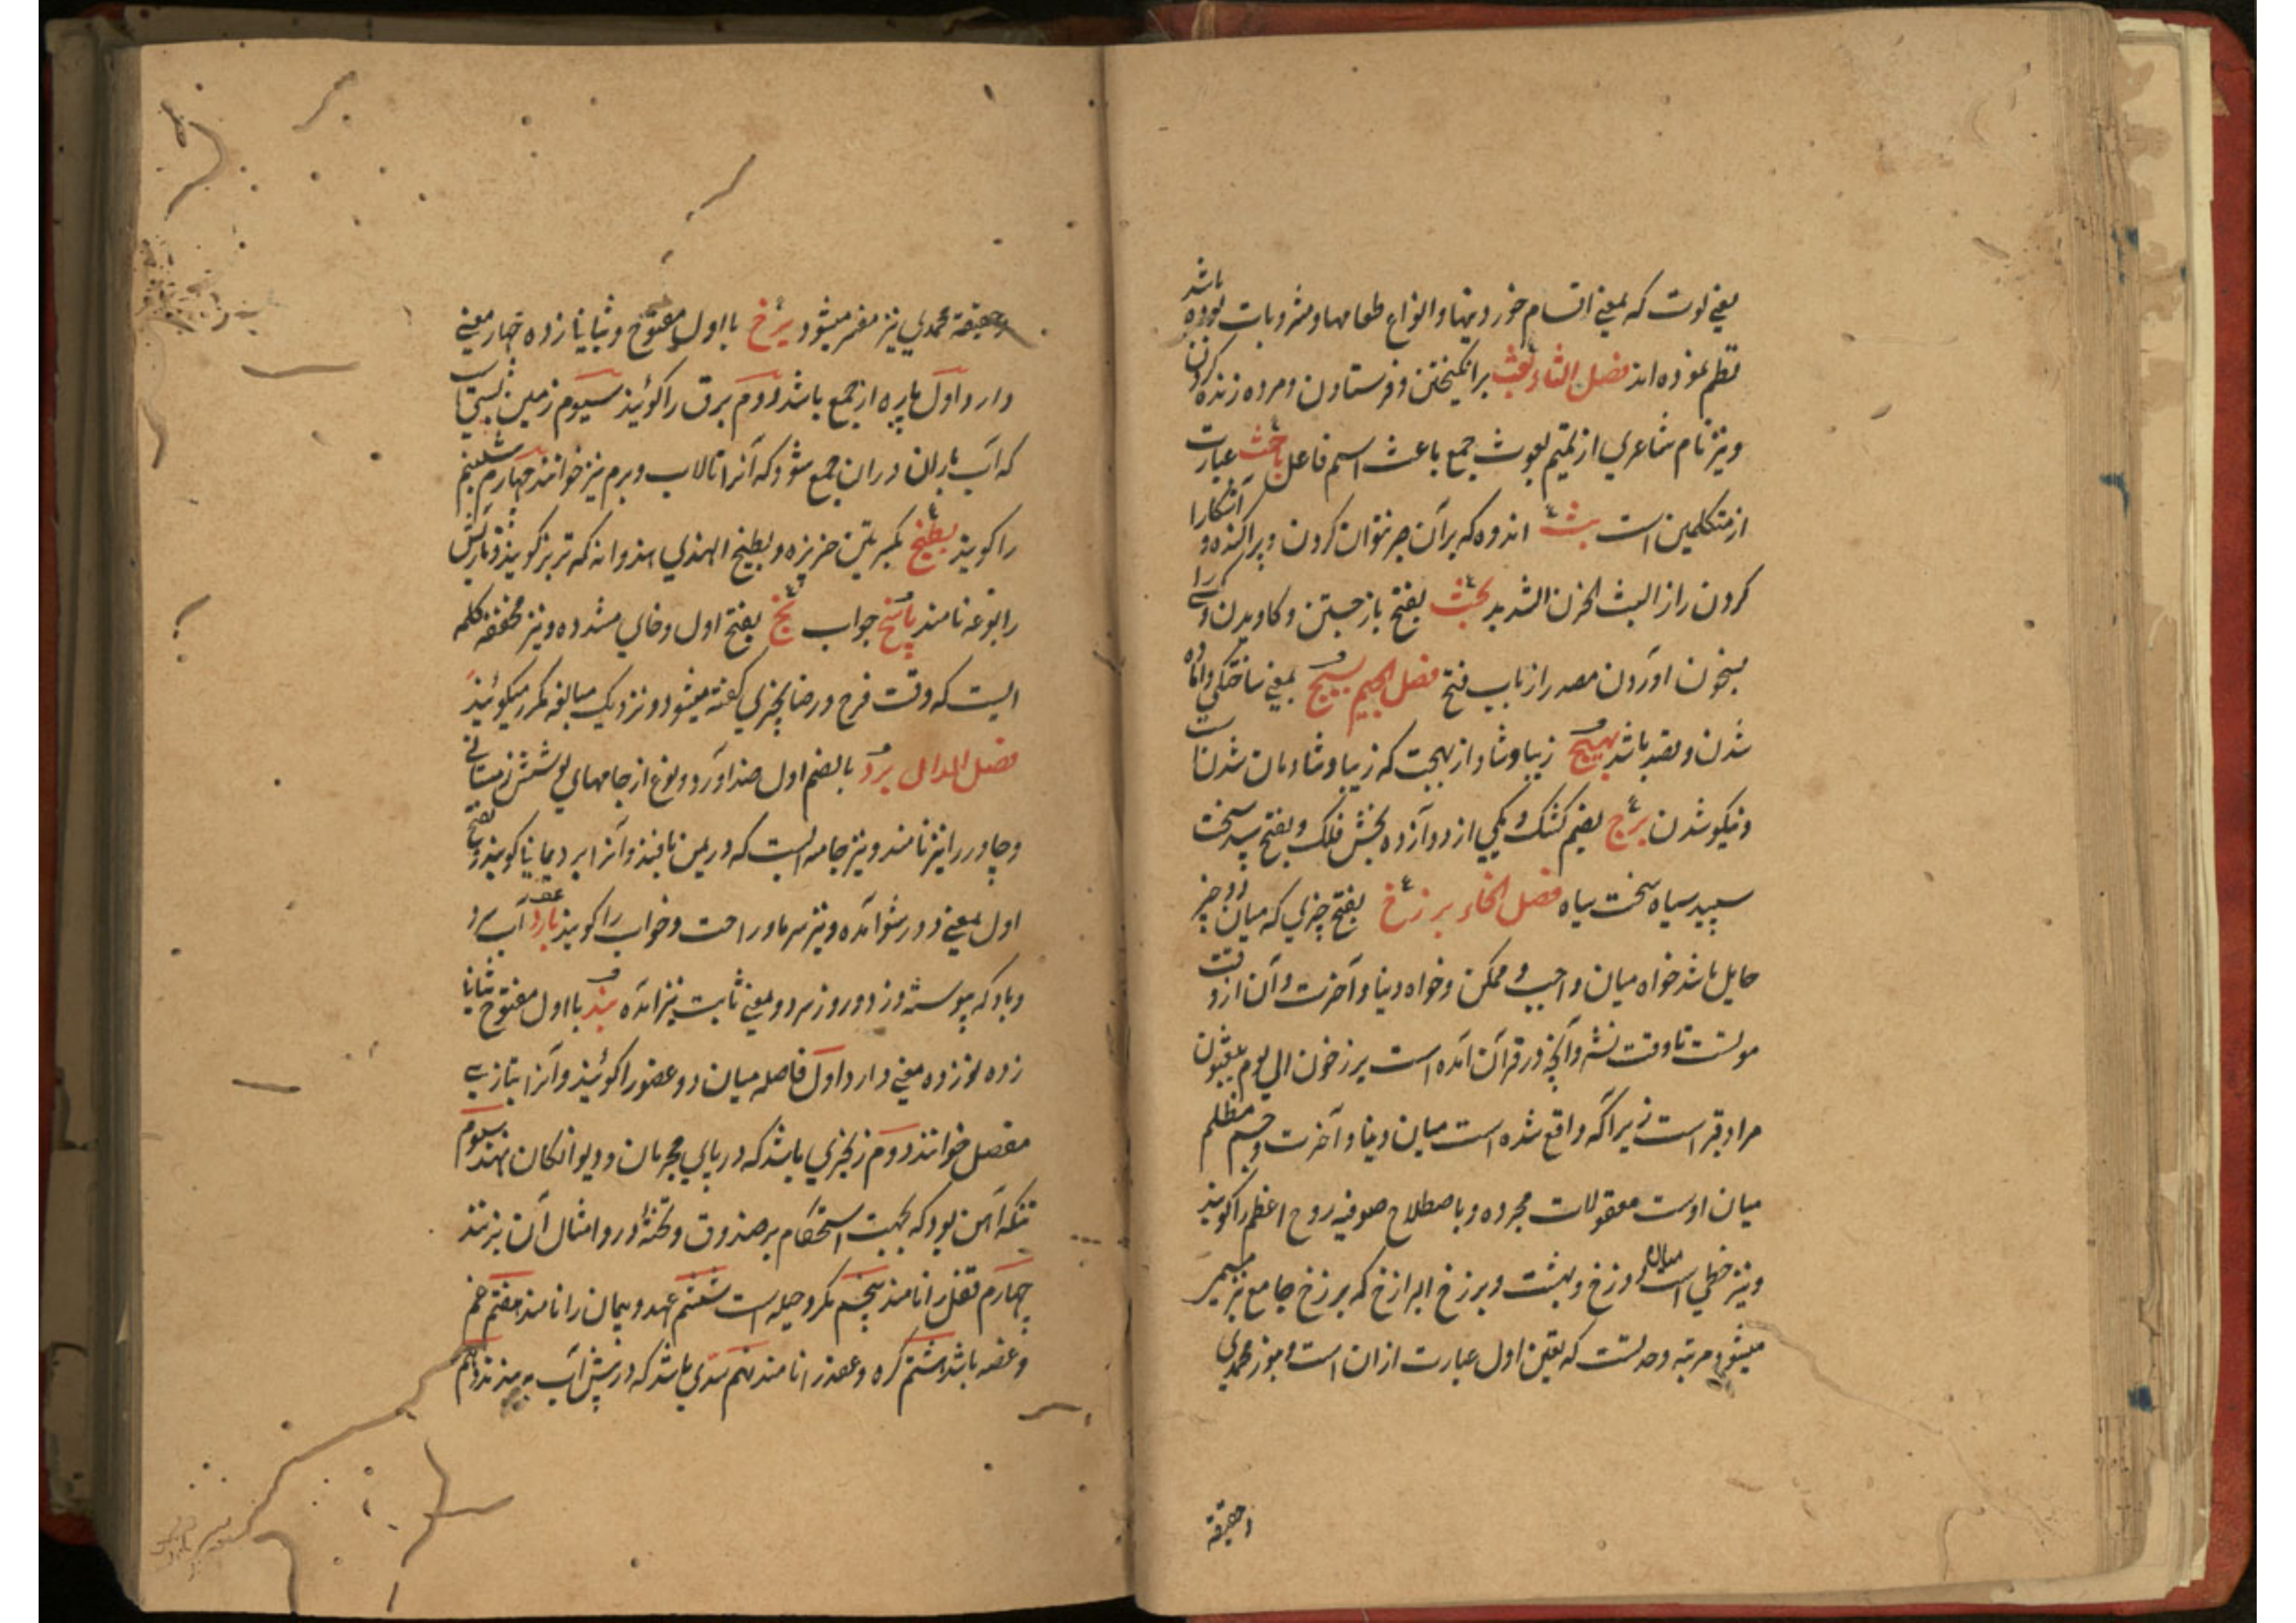 یعنی لوت که بمعنی اقسام خوردنیها و انواع طعامها و مشروبات بوده باشد
نظم نموده اند فصل الثاء بعث برانگیختن و فرستادن و مرده زنده کردن
و نیز نام شاعری از تمیم بعوث جمع باعث اسم فاعل باحث عبارت
از متکلمین است بث اندوه که بر آن صبر نتوان کردن و پراکنده و آشکارا
کردن راز البث الحزن الشدید بحث بفتح باز جستن و کاویدن و کسی را
بسخون اوردن مصدر از باب فتح فصل الجیم بسیج بمعنی ساختگی و اماده
شدن و قصد باشد بهیج زیبا و شاد از بهجت که زیبا و شادمان شدنست
و نیکو شدن برج بضم کشک و یکی از دوآزده بخش فلک و بفتح سپید سخت
سپید سیاه سخت سیاه فصل الخاء برزخ بفتح چیزی که میان دو چیز
حایل باشد خواه میان واجب و ممکن و خواه دنیا و آخرت و آن از وقت
موتست تا وقت نشر و آنچه در قرآن آمده است برزخون الی یوم یبعثون
مراد قبر است زیراکه واقع شده است میان دنیا و آخرت و جسم مظلم
میان اوست معقولات مجرده و باصطلاح صوفیه روح اعظم را گویند
و نیز خطی است میان دوزخ و بهشت و برزخ البرازخ که برزخ جامع نیز
میشود مرتبه وحدتست که تعین اول عبارت ازان است و بنور محمدی
و حقیقة
و حقیقة محمدی نیز مفسر میشود برخ با اول مفتوح و بثانی زده چهار معنی
دارد اول پاره از جمع باشد دوم برق را گویند سیوم زمین پستی
که آب باران دران جمع شود که آنرا تالاب و برم نیز خوانند چهارم شبنم
را گویند بطیخ بکسرتین خربزه و بطیخ الهندی هندوانه که تربز گویند
را بوغه نامند پاسخ جواب بخ بفتح اول و خای مشدده و نیز مخففه کلمه
ایست که وقت فرح و رضا بچیزی گفته میشود و نزدیک مبالغه مکرر میگوئند
فصل الدال برد بالضم اول ضد آورد و نوع از جامهای پوشش زمستانی
و چادر را نیز نامند و نیز جامه ایست که در یمن بافند و آنرا برد یمانی گویند و بفتح
اول بمعنی دور شو آمده و نیز سرما و راحت و خواب را گویند بارد آب سرد
و باد که پیوسته وزد و روز سرد و بمعنی ثابت نیز آمده بند با اول مفتوح بثانی
زده نوزده معنی دارد اول فاصله میان دو عضو را گوئند و آنرا بتازی
مفصل خوانند دوم زنجیری باشد که در پای مجرمان و دیوانگان نهند سیوم
تنکه آهن بود که بجهت استحکام بر صندوق و تخته در و امثال آن بزنند
چهارم قفل را نامند پنجم مکر و حیله است ششم عهد و پیمان را نامند هفتم غم
و غصه باشد هشتم گره و عقد را نامند نهم سدی باشد که در پیش آب بندند دهم